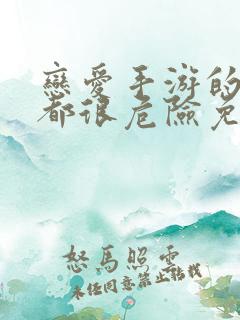 戀愛手游的
都很危險免
怒馬照雲
未經同意禁止轉載